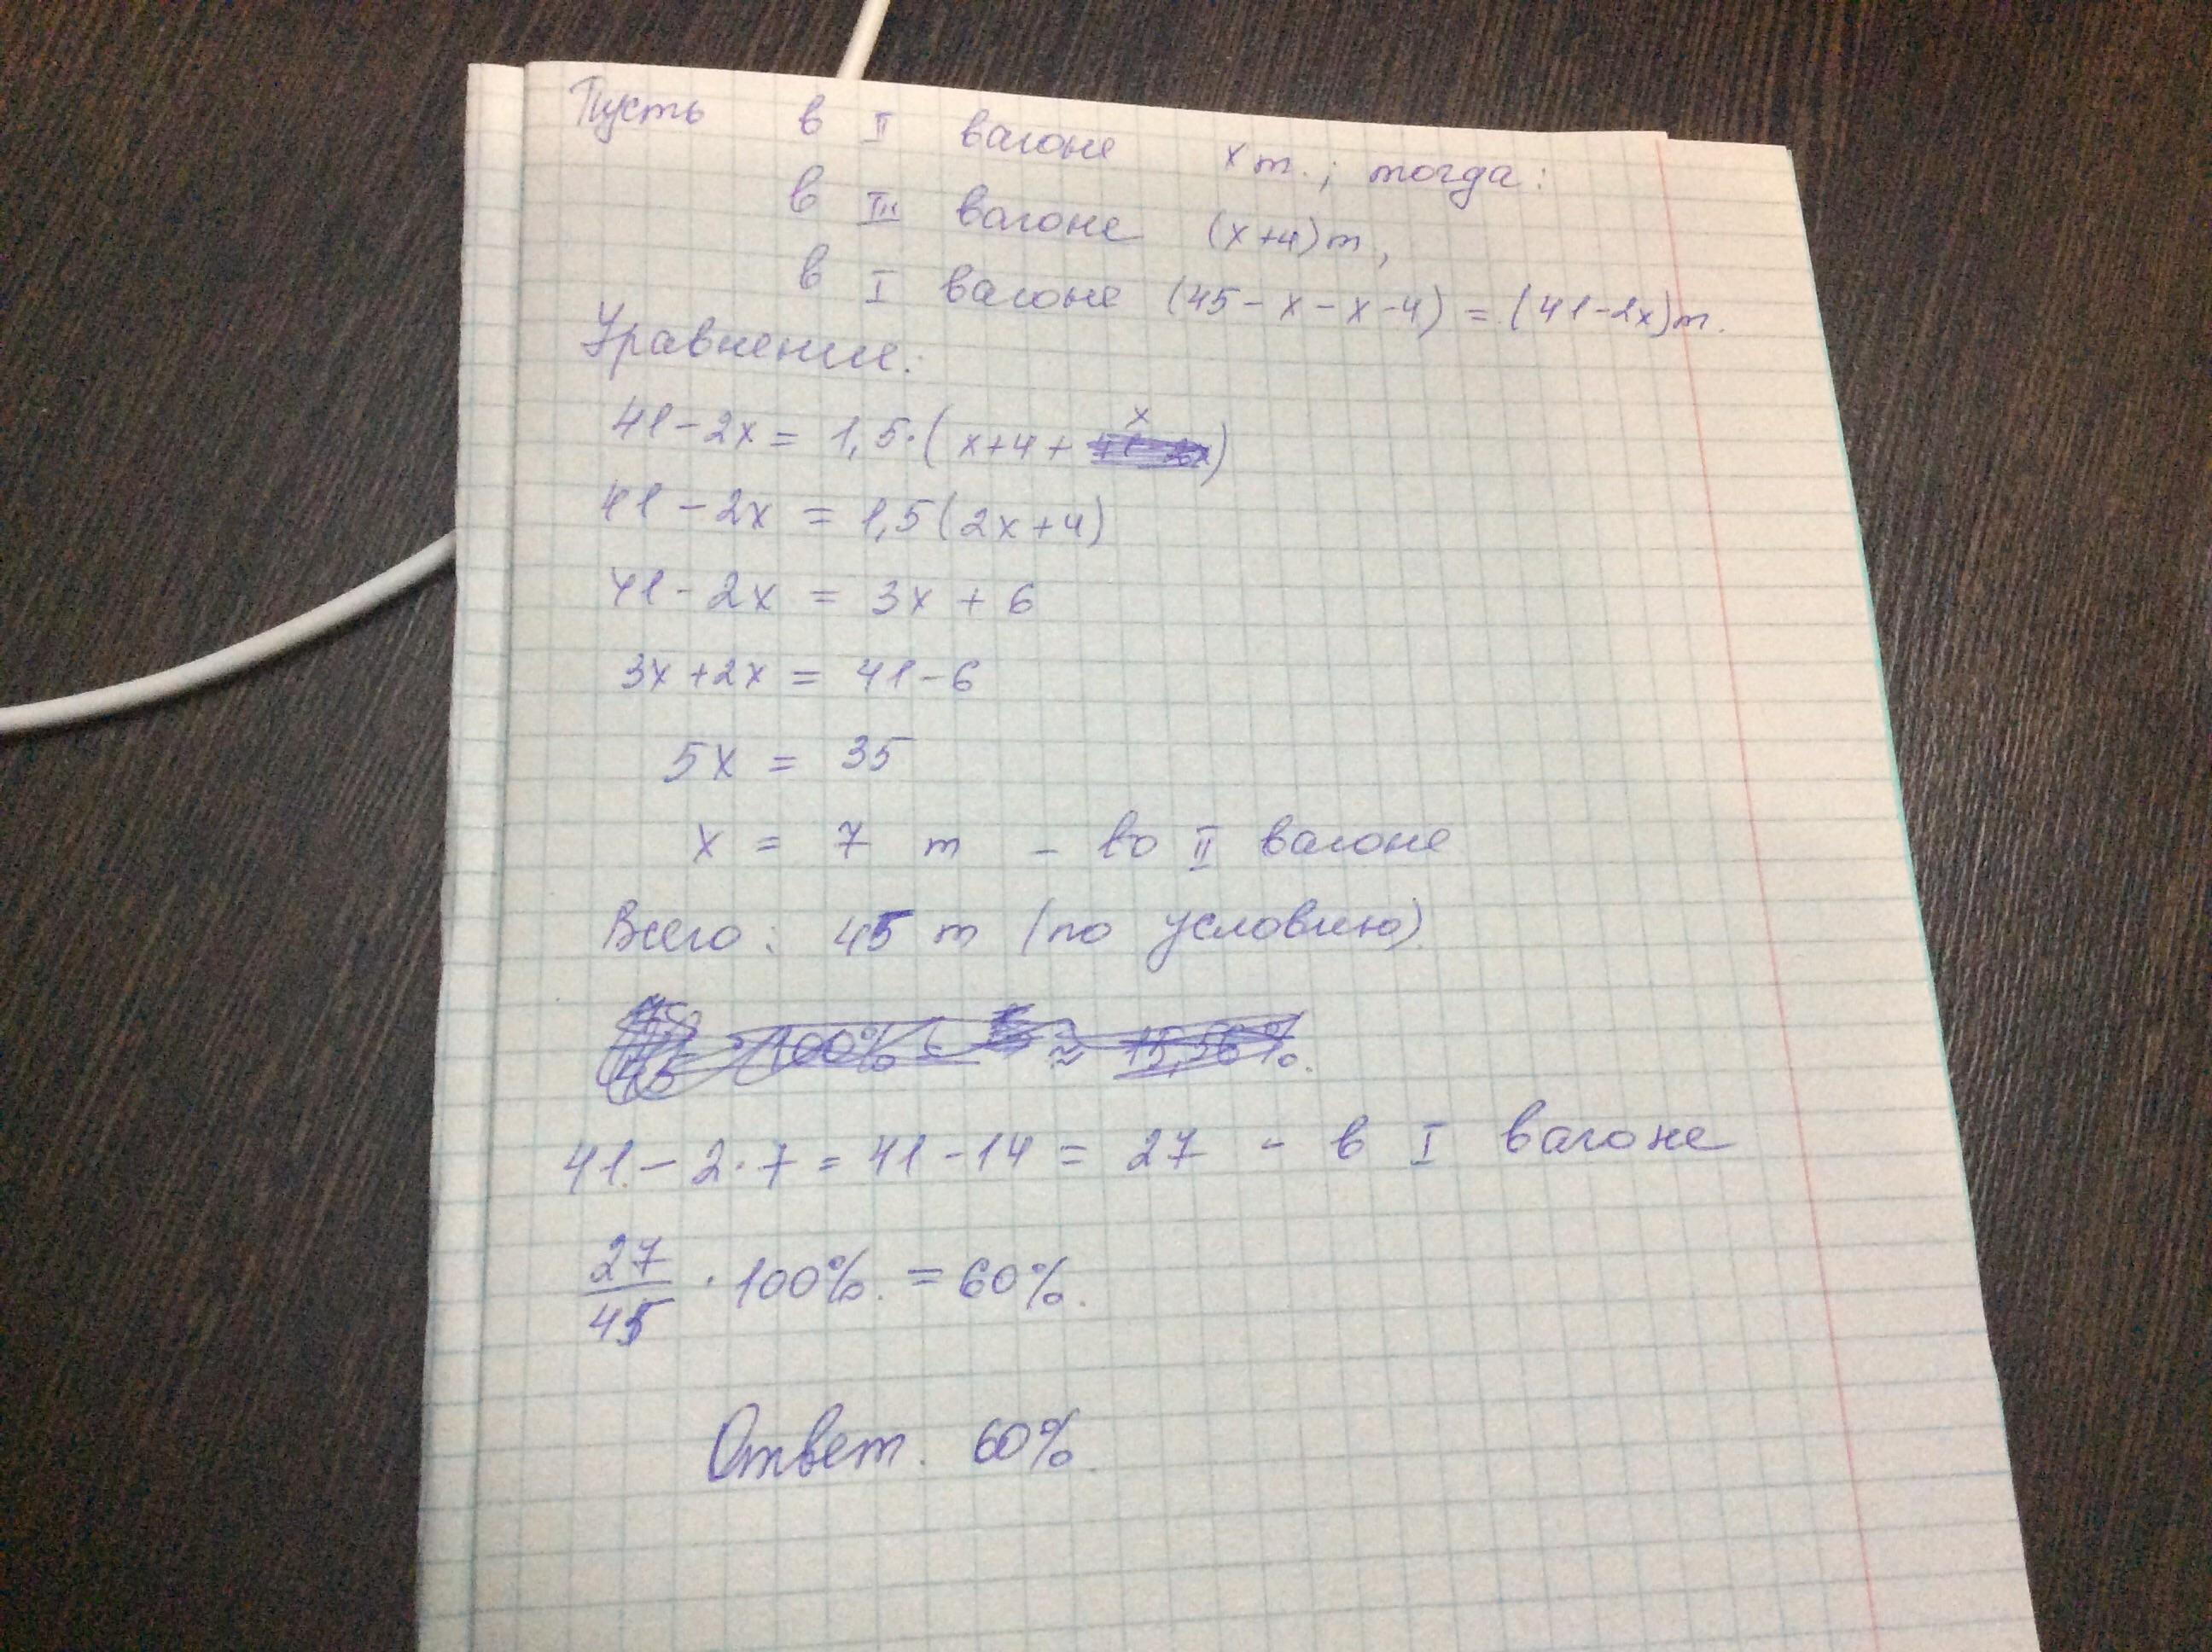 Пусть в II вагоне x т.; тогда:
в III вагоне (x+4)т,
в I вагоне (45-x-x-4) = (41-2x)т.
Уравнение:
41-2x = 1,5·(x+4+x)
41-2x = 1,5(2x+4)
41-2x = 3x+6
3x+2x = 41-6
5x = 35
x = 7 т - во II вагоне
Всего: 45 т (по условию)
· 100% ≈ 15,56%.
41-2·7 = 41-14 = 27 - в I вагоне
27/45 · 100%. = 60%.
Ответ. 60%.